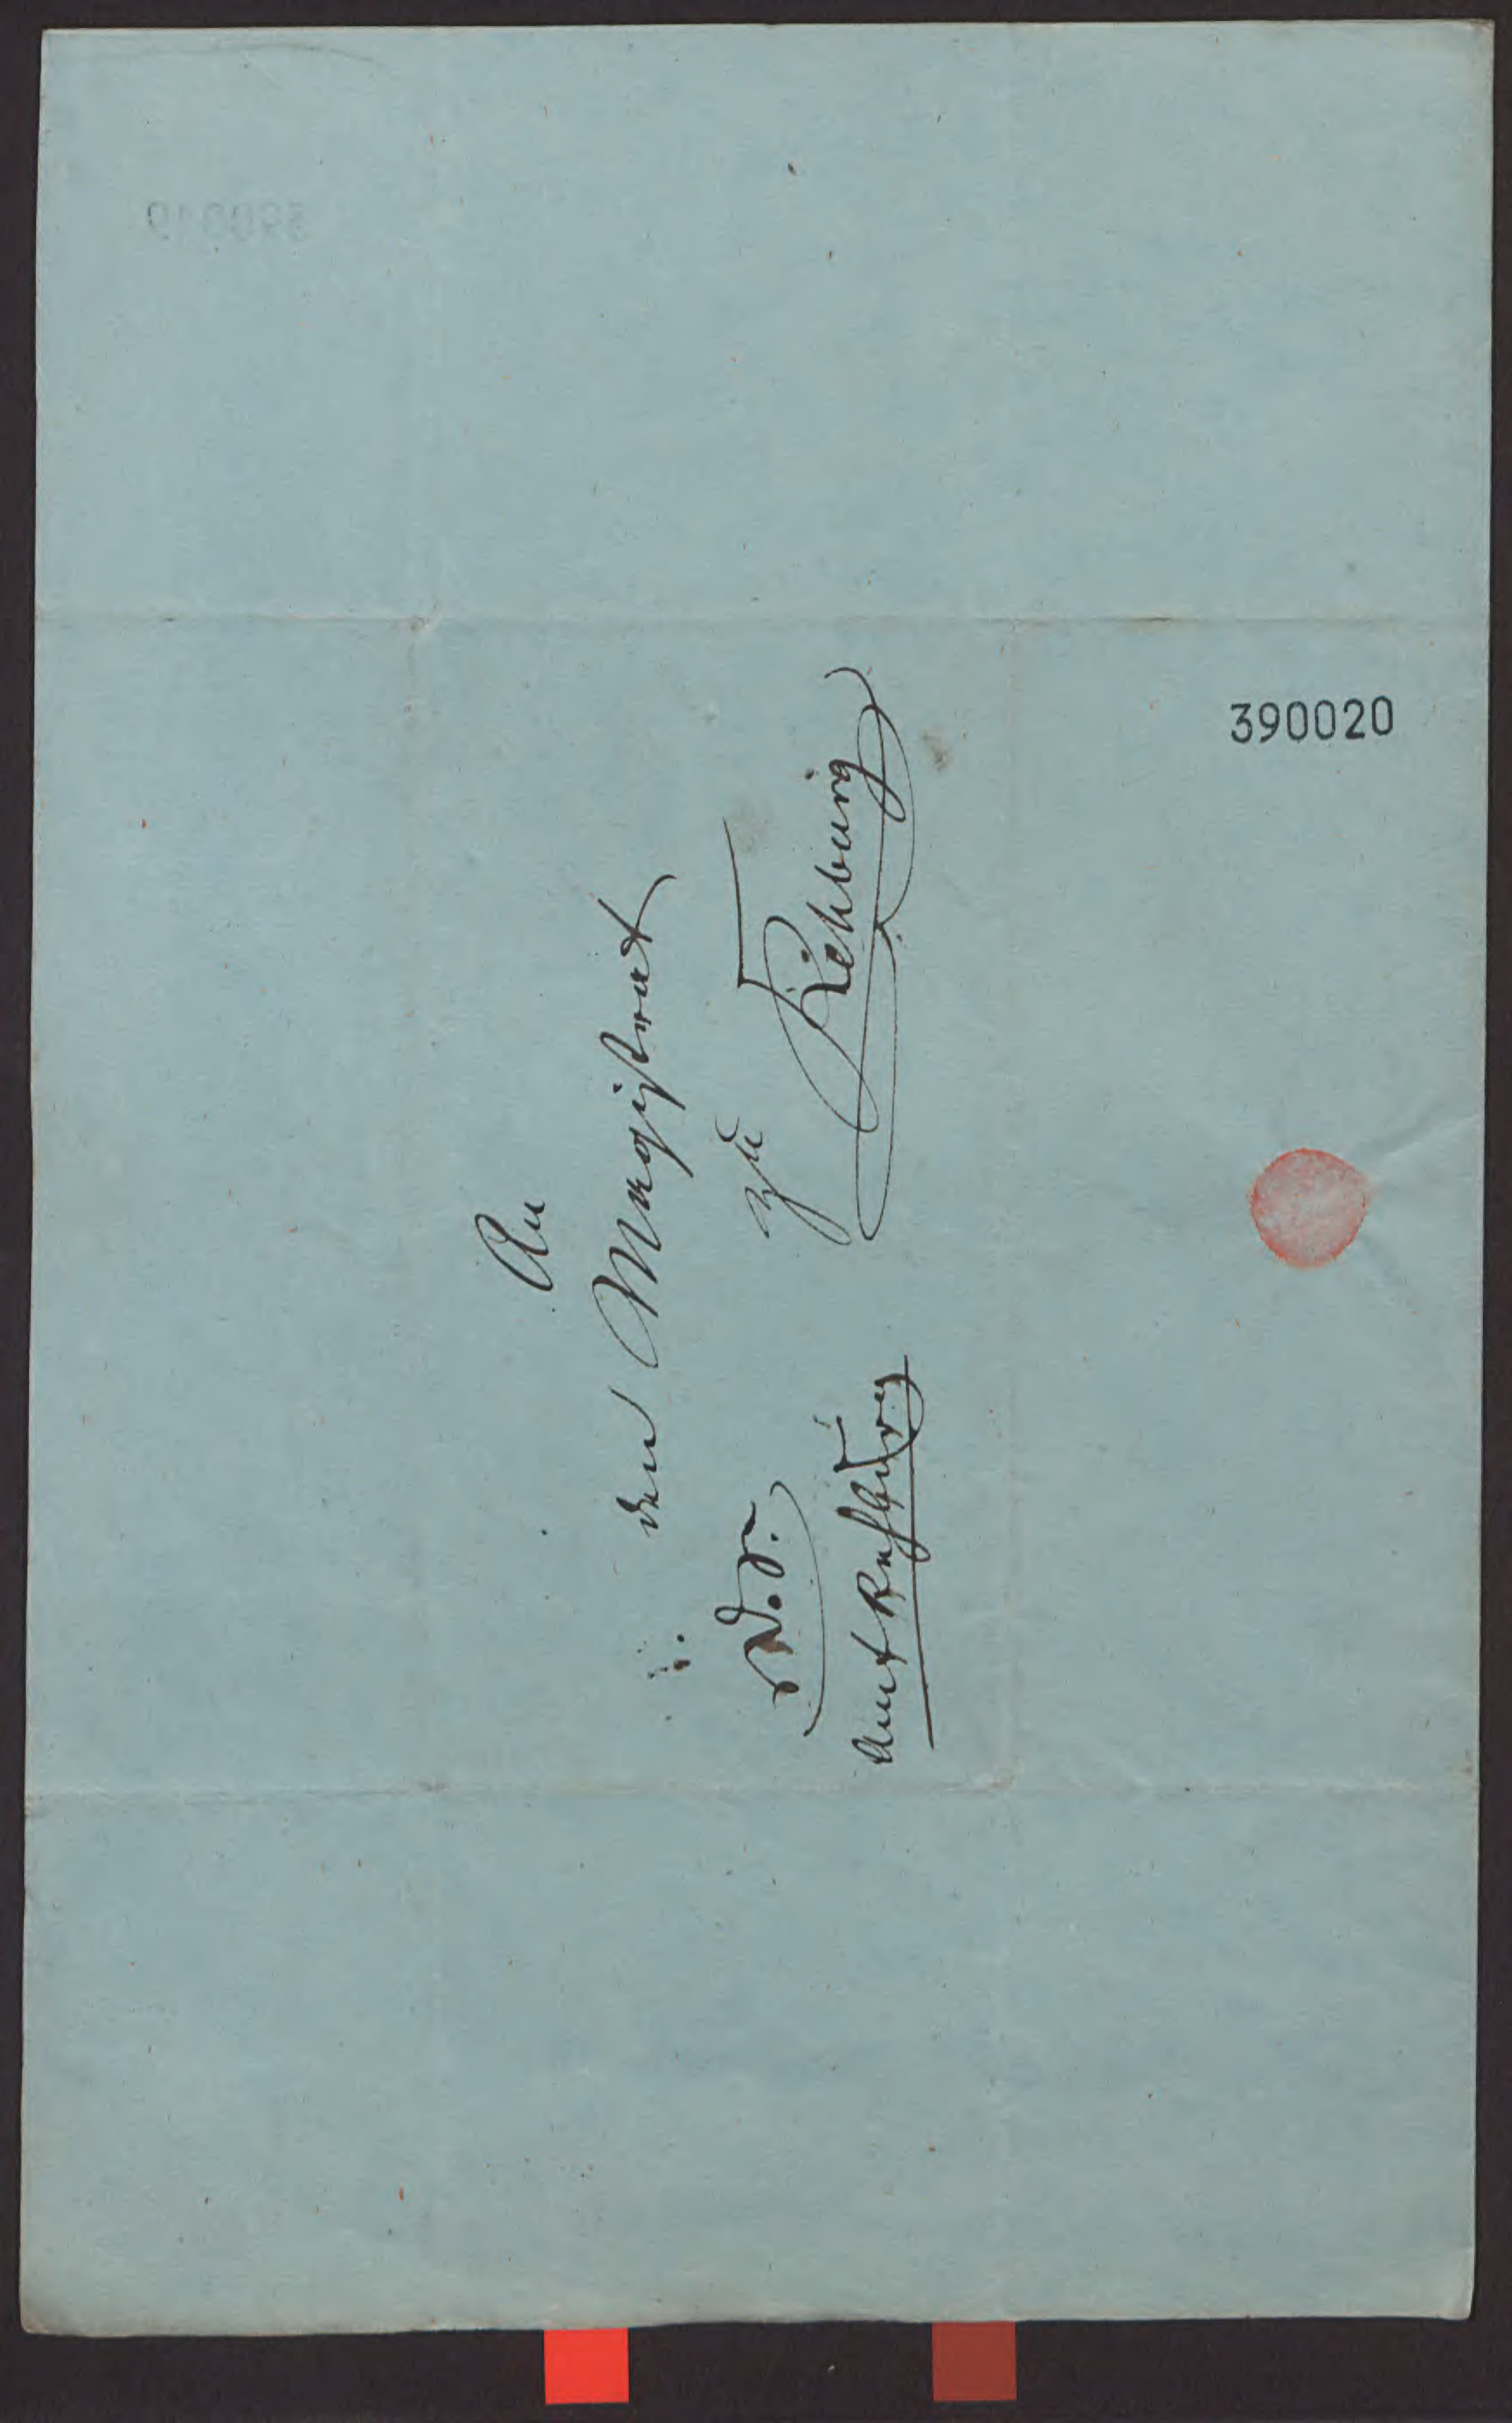 An
den Magistrat
zu
Rehburg
D. S.
Amt Rehburg
390020